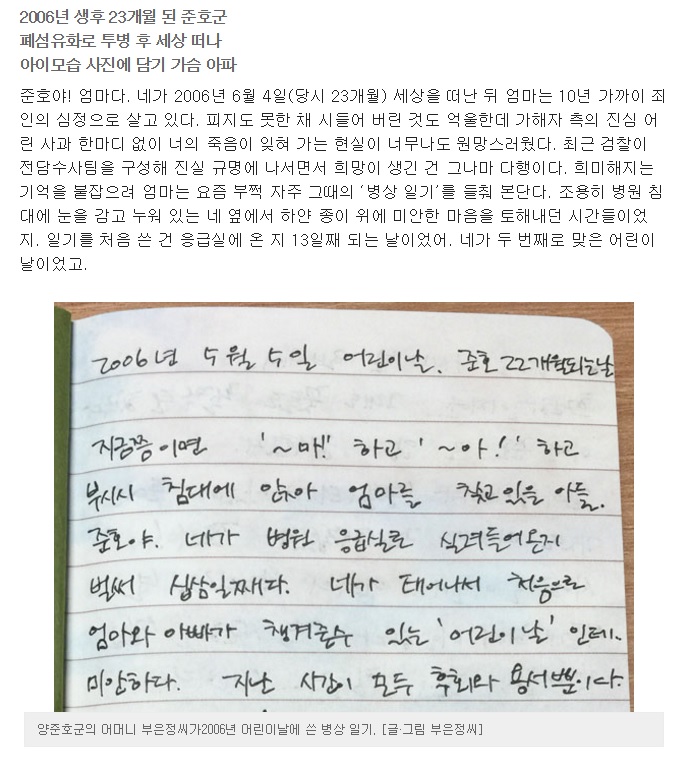 2006년 생후 23개월 된 준호군
폐섬유화로 투병 후 세상 떠나
아이모습 사진에 담기 가슴 아파
준호야! 엄마다. 네가 2006년 6월 4일(당시 23개월) 세상을 떠난 뒤 엄마는 10년 가까이 죄
인의 심정으로 살고 있다. 피지도 못한 채 시들어 버린 것도 억울한데 가해자 측의 진심 어
린 사과 한마디 없이 너의 죽음이 잊혀 가는 현실이 너무나도 원망스러웠다. 최근 검찰이
전담수사팀을 구성해 진실 규명에 나서면서 희망이 생긴 건 그나마 다행이다. 희미해지는
기억을 붙잡으려 엄마는 요즘 부쩍 자주 그때의 ‘병상 일기’를 들춰 본단다. 조용히 병원 침
대에 눈을 감고 누워 있는 네 옆에서 하얀 종이 위에 미안한 마음을 토해내던 시간들이었
지. 일기를 처음 쓴 건 응급실에 온 지 13일째 되는 날이었어. 네가 두 번째로 맞은 어린이
날이었고.
2006년 5월 5일 어린이날. 준호 22개월되는날
지금쯤이면 '~마!' 하고 '~아!' 하고
부시시 침대에 앉아 엄마를 찾고 있을 아들.
준호야. 네가 병원 응급실로 실려들어온지
벌써 십삼일째다. 네가 태어나서 처음으로
엄마와 아빠가 챙겨줄수 있는 '어린이날' 인데.
미안하다. 지난 시간이 모두 후회와 용서뿐이다.
양준호군의 어머니 부은정씨가2006년 어린이날에 쓴 병상 일기. [글·그림 부은정씨]